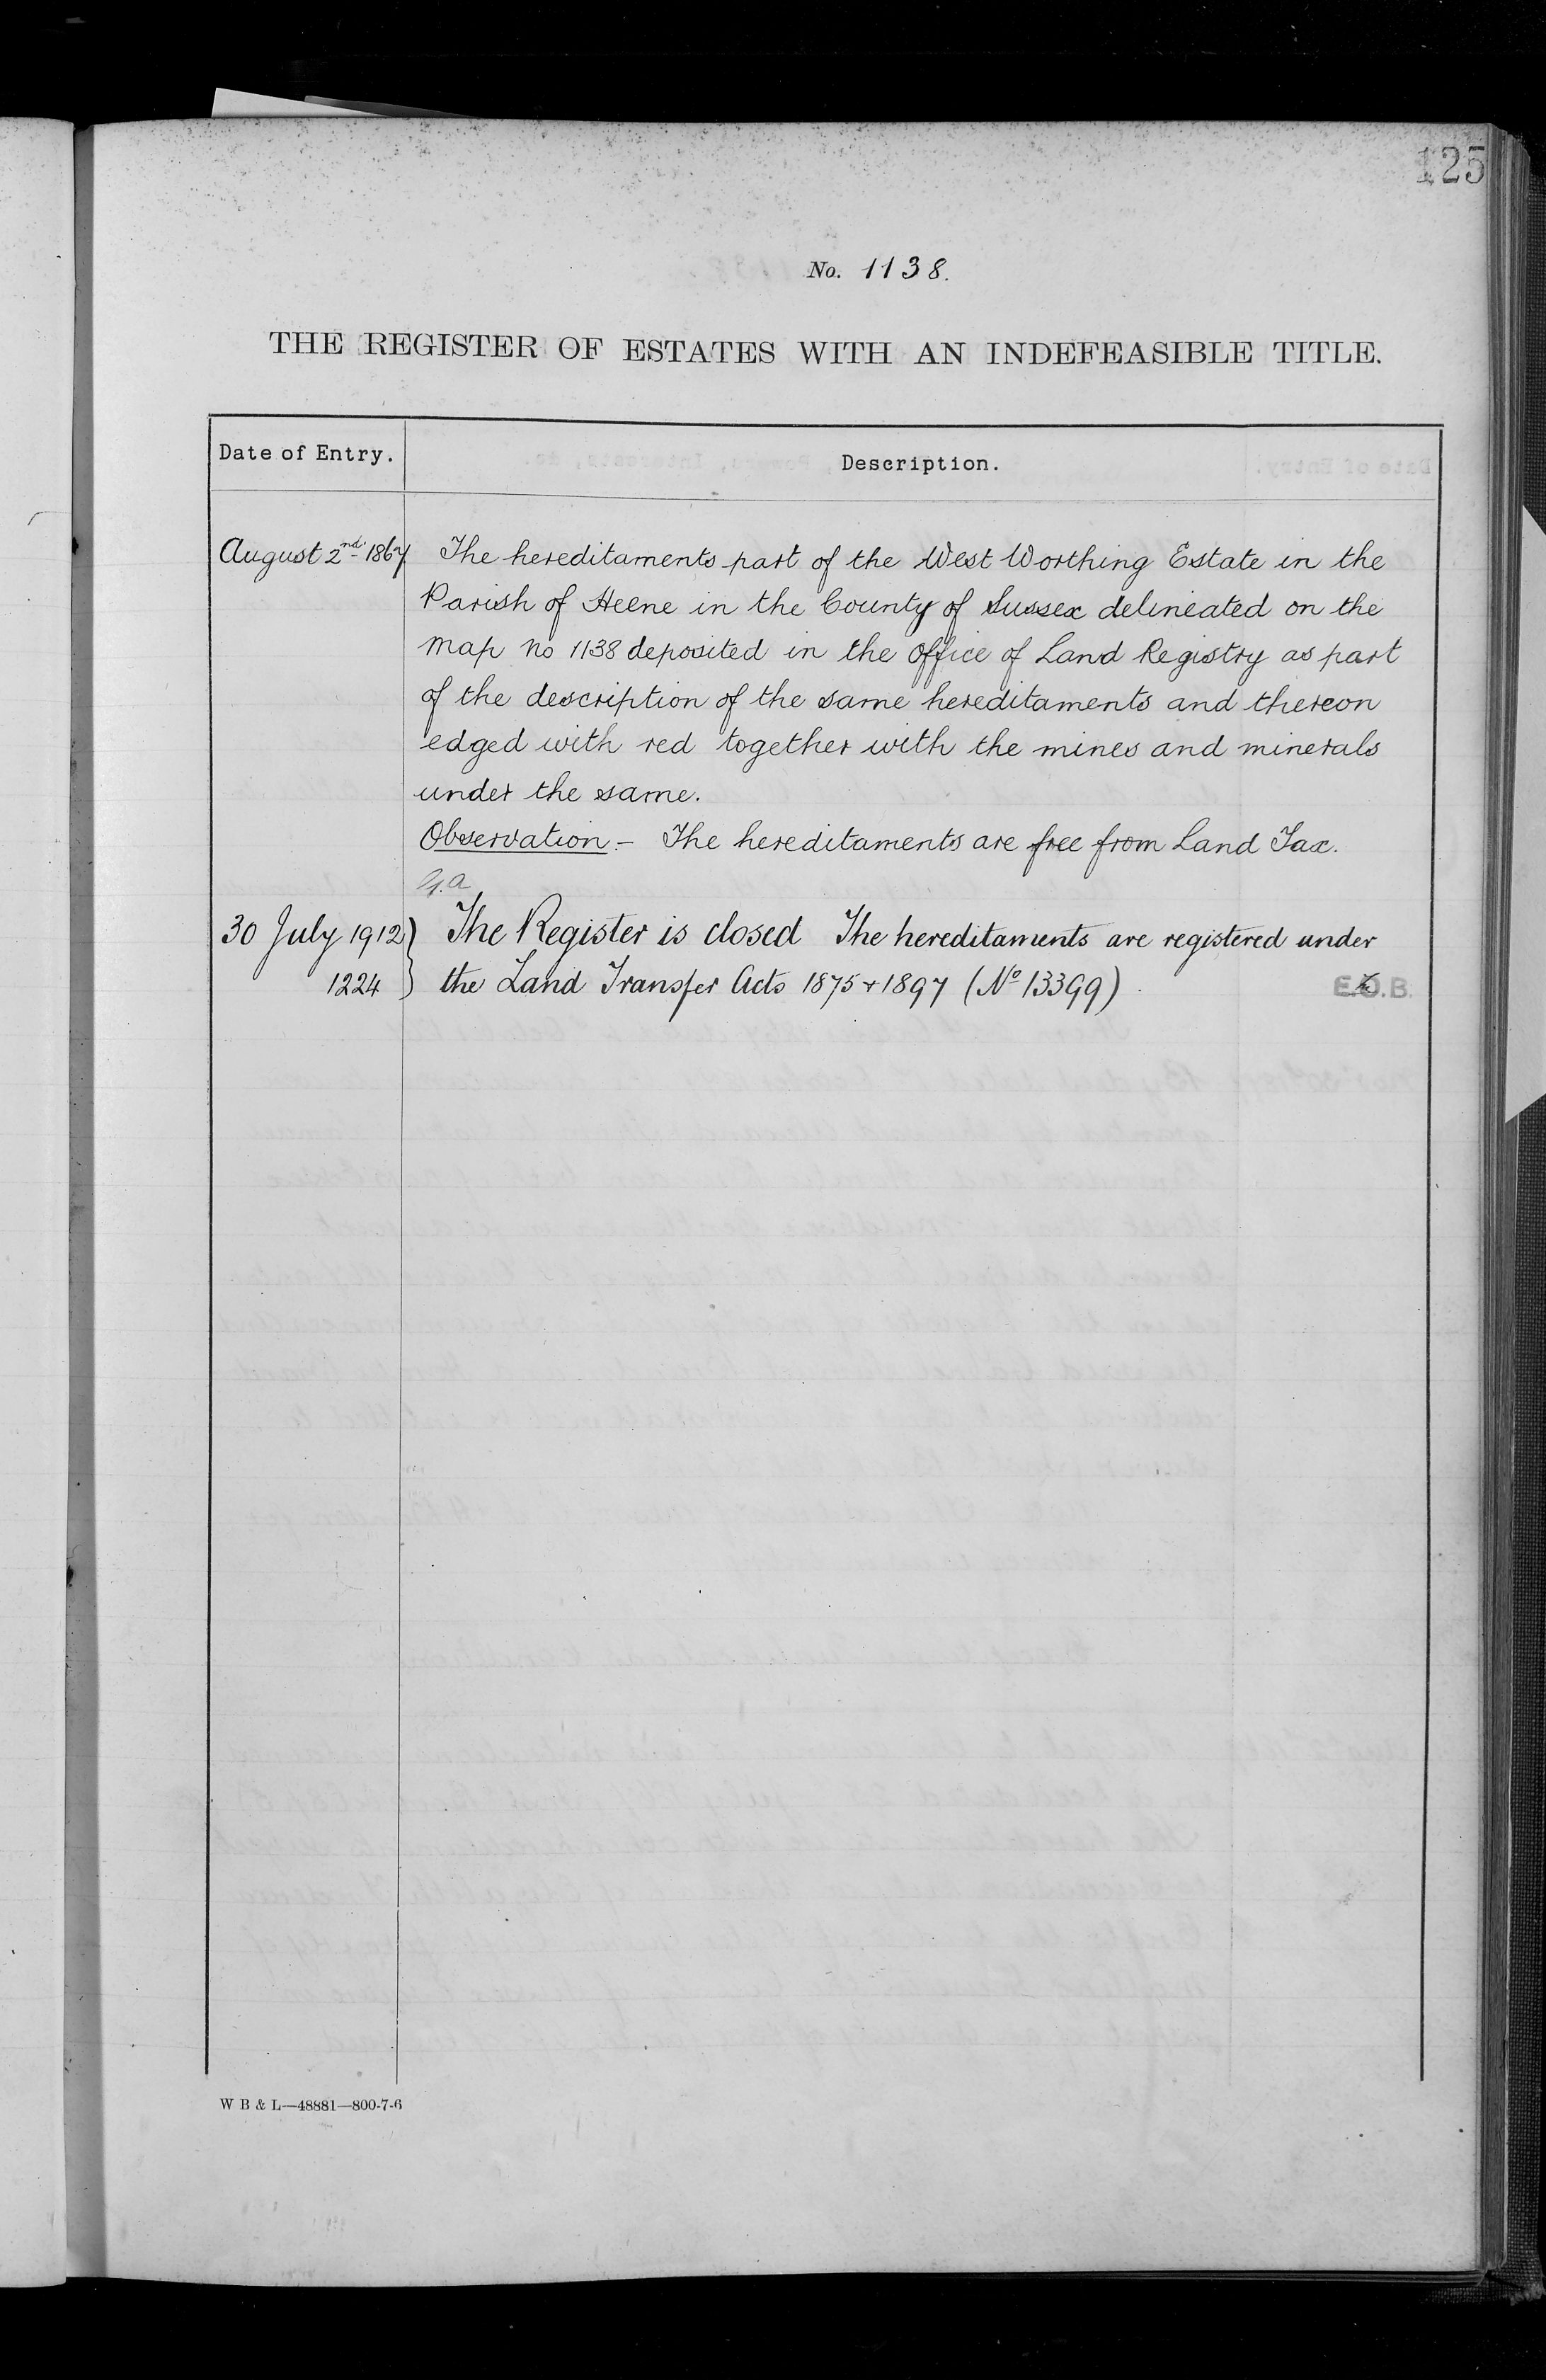 125
No. 1138.
THE REGISTER OF ESTATES WITH AN INDEFEASIBLE TITLE.
Date of Entry. Description.
August 2nd 1867 The hereditaments part of the West Worthing Estate in the
Parish of Heene in the County of Sussex delineated on the
map no 1138 deposited in the office of Land Registry as part
of the description of the same hereditaments and thereon
edged with red together with the mines and minerals
under the same.
Observation.- The hereditaments are free from Land Tax.
G.a
30 July 1912 The Register is closed The hereditaments are registered under
1224 the Land Transfer Acts 1875 + 1897 (No 13399) E.O.B.
W B & L—48881—800-7-6